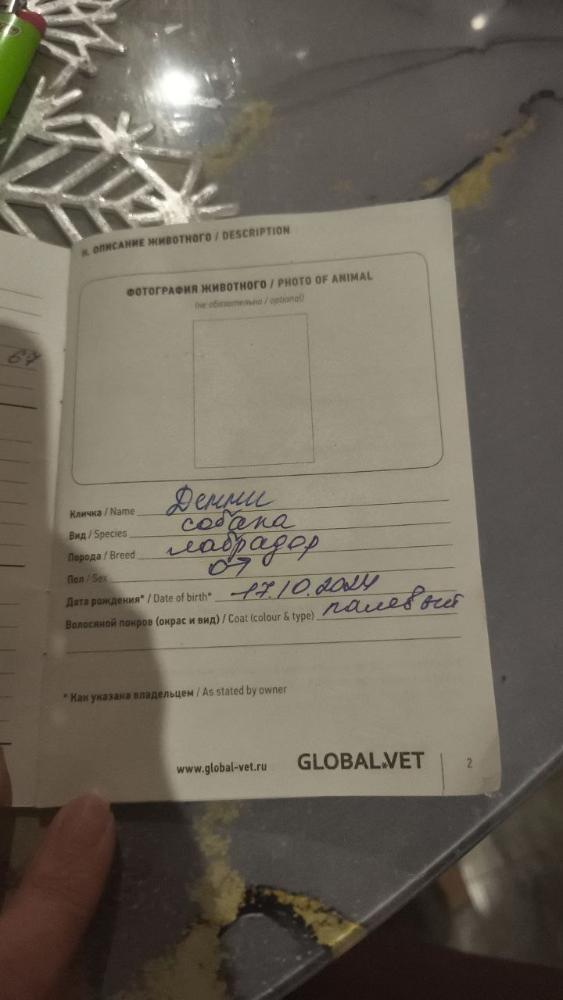 II. ОПИСАНИЕ ЖИВОТНОГО / DESCRIPTION
ФОТОГРАФИЯ ЖИВОТНОГО / PHOTO OF ANIMAL
(не обязательно / optional)
67
Кличка / Name Денни
Вид / Species собака
Порода / Breed лабрадор
Пол / Sex ♂
Дата рождения* / Date of birth* 17.10.2024
Волосяной покров (окрас и вид) / Coat (colour & type) палевый
* Как указана владельцем / As stated by owner
www.global-vet.ru GLOBAL.VET 2